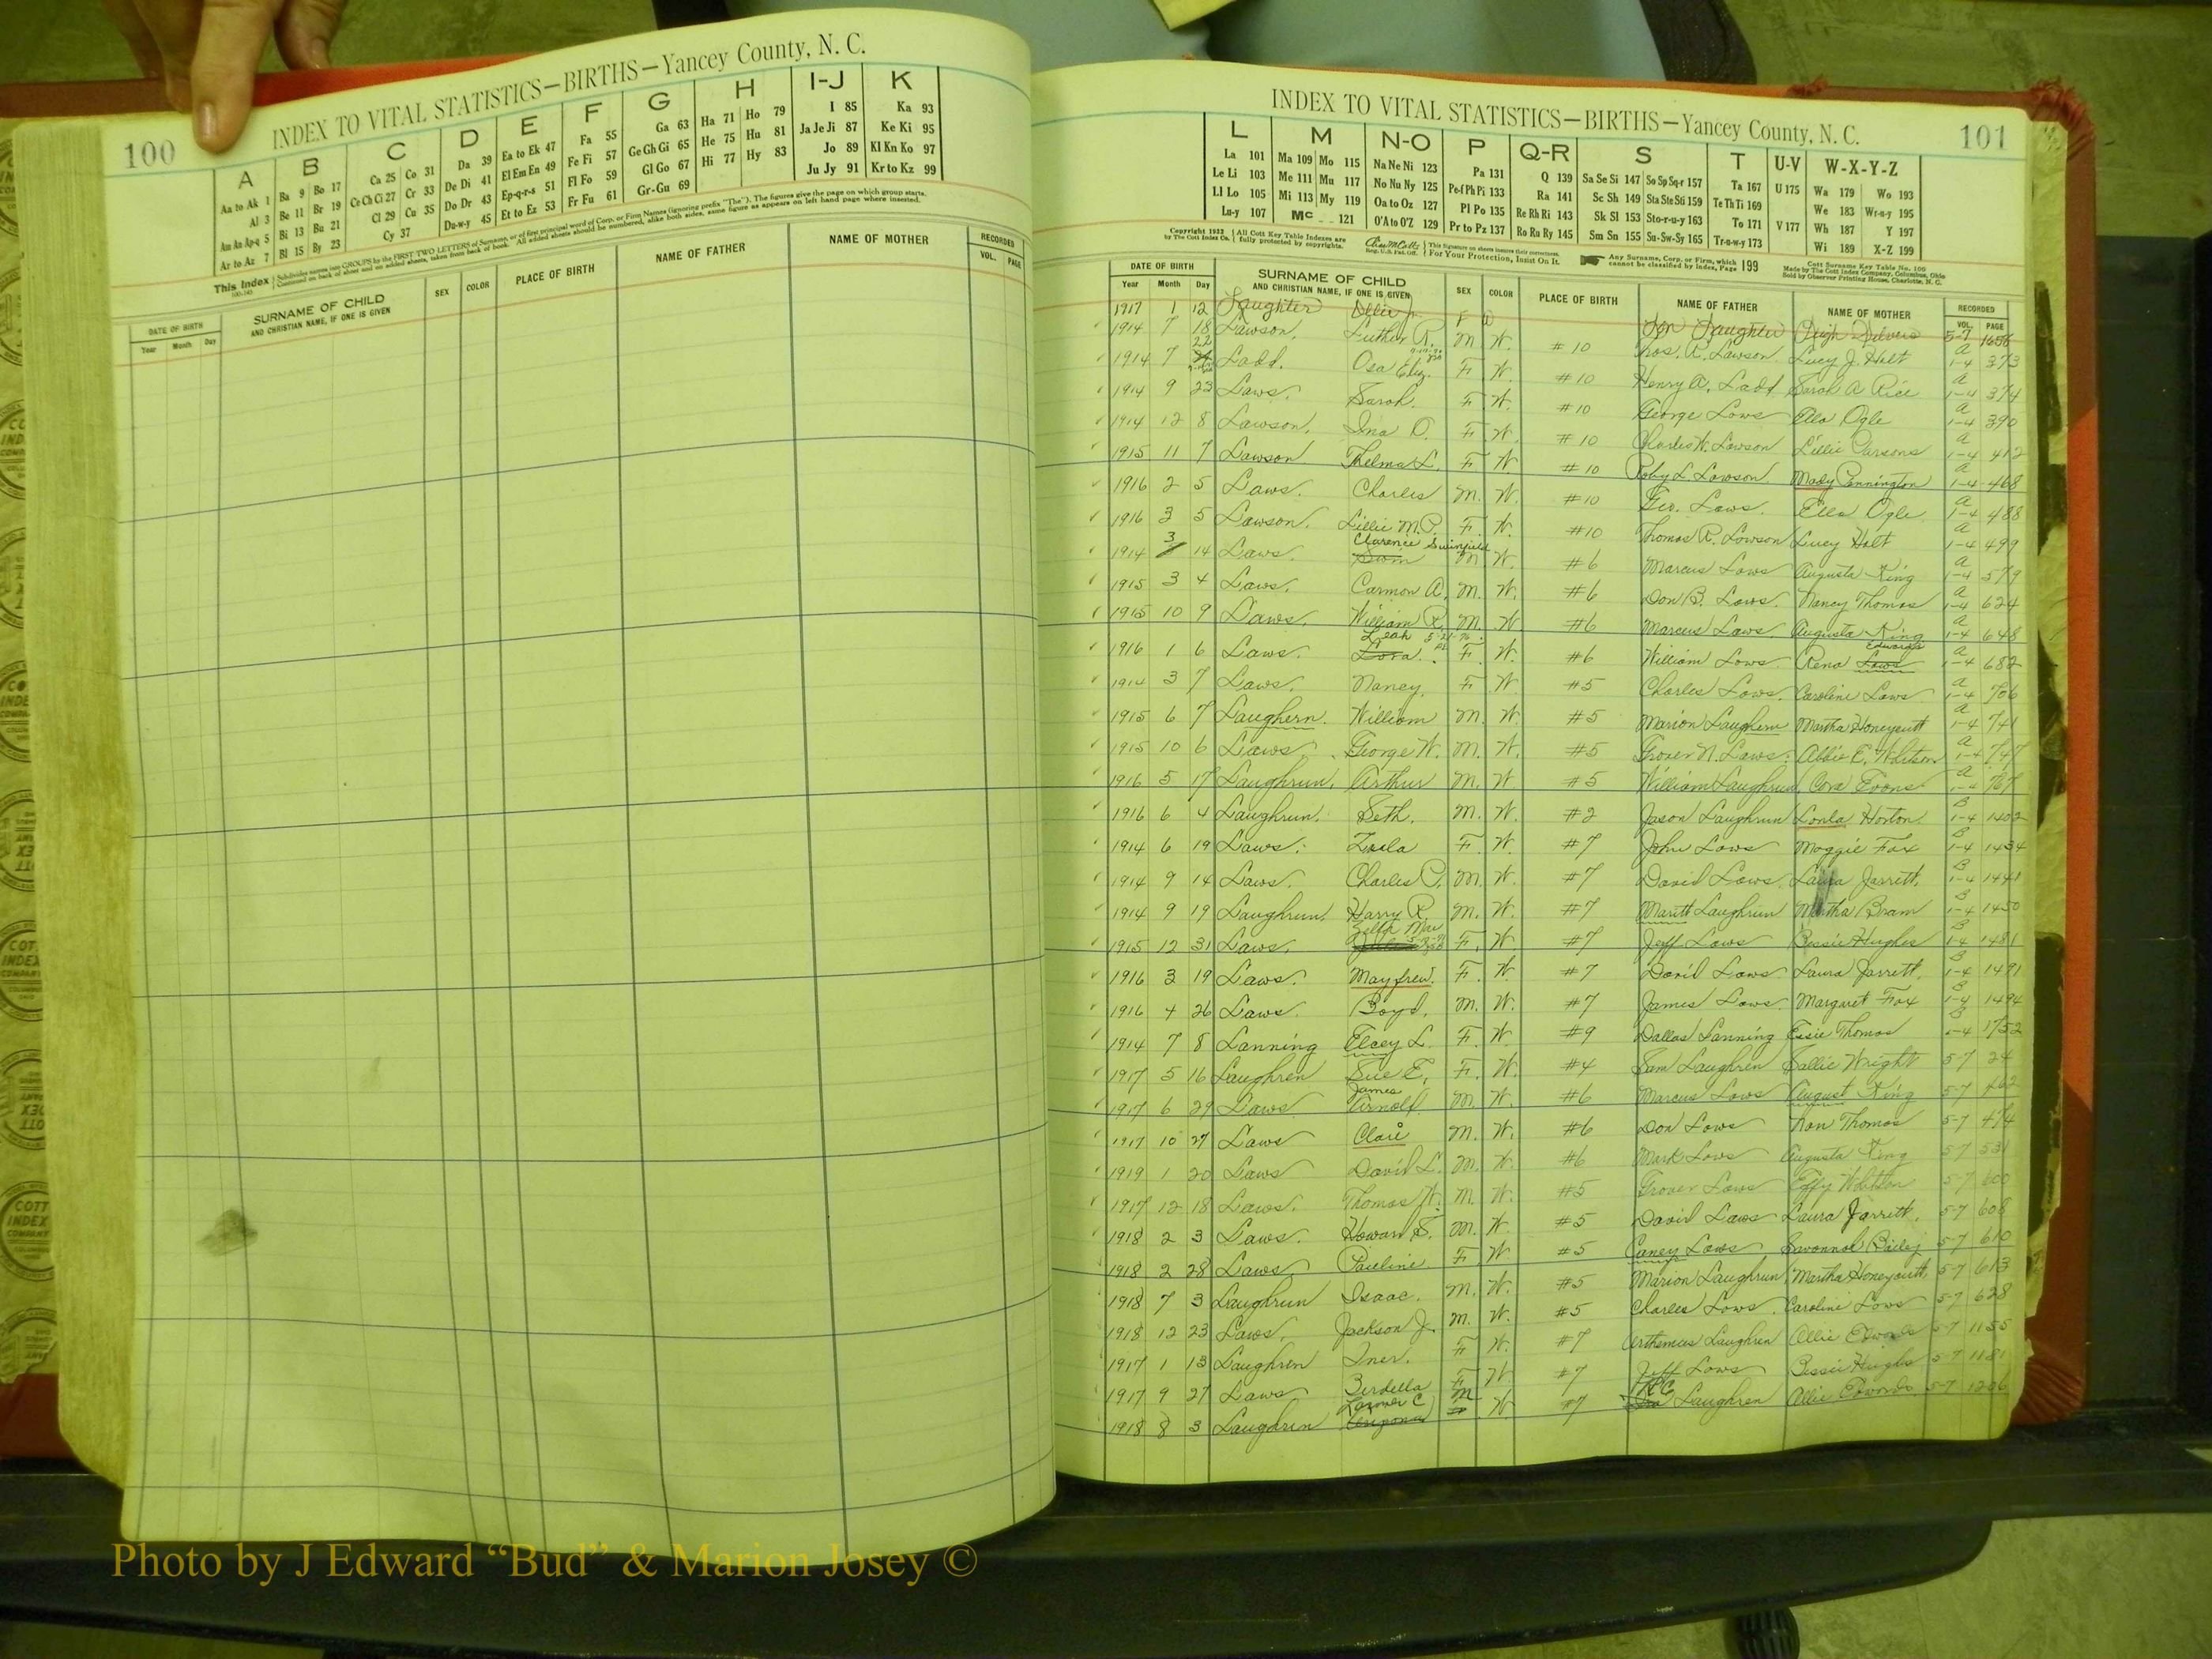 100
INDEX TO VITAL STATISTICS—BIRTHS—Yancey County, N. C.
A B C D E F G H I-J K
Aa to Ak 1 Ba 9 Bo 17 Ca 25 Co 31 Da 39 Ea to Ek 47 Fa 55 Ga 63 Ha 71 Ho 79 I 85 Ka 93
Al 3 Be 11 Br 19 Ce Ch Ci 27 Cr 33 De Di 41 El Em En 49 Fe Fi 57 Ge Gh Gi 65 He 75 Hu 81 Ja Je Ji 87 Ke Ki 95
Am An Ap-q 5 Bi 13 Bu 21 Cl 29 Cu 35 Do Dr 43 Ep-q-r-s 51 Fl Fo 59 Gl Go 67 Hi 77 Hy 83 Jo 89 Kl Kn Ko 97
Ar to Az 7 Bl 15 By 23 Cy 37 Du-w-y 45 Et to Ez 53 Fr Fu 61 Gr-Gu 69 Ju Jy 91 Kr to Kz 99
This Index
DATE OF BIRTH SURNAME OF CHILD SEX COLOR PLACE OF BIRTH NAME OF FATHER NAME OF MOTHER RECORDED
Year Month Day AND CHRISTIAN NAME, IF ONE IS GIVEN VOL. PAGE
INDEX TO VITAL STATISTICS—BIRTHS—Yancey County, N. C.
101
L M N-O P Q-R S T U-V W-X-Y-Z
La 101 Ma 109 Mo 115 Na Ne Ni 123 Pa 131 Q 139 Sa Se Si 147 So Sp Sq-r 157 Ta 167 U 175 Wa 179 Wo 193
Le Li 103 Me 111 Mu 117 No Nu Ny 125 Pe-f Ph Pi 133 Ra 141 Sc Sh 149 Sta Ste Sti 159 Te Th Ti 169 We 183 Wr-u-y 195
Ll Lo 105 Mi 113 My 119 Oa to Oz 127 Pl Po 135 Re Rh Ri 143 Sk Sl 153 Sto-r-u-y 163 To 171 V 177 Wh 187 Y 197
Lu-y 107 Mc 121 O'A to O'Z 129 Pr to Pz 137 Ro Ru Ry 145 Sm Sn 155 Su-Sw-Sy 165 Tr-u-w-y 173 Wi 189 X-Z 199
Copyright 1922 by The Cott Index Co. All Cott Key Table Indexes are fully protected by copyrights. This Signature on sheets insures their correctness. For Your Protection, Insist On It. Any Surname, Corp. or Firm, which cannot be classified by Index, Page 199 Cott Surname Key Table No. 100 Made by The Cott Index Company, Columbus, Ohio Sold by Observer Printing House, Charlotte, N. C.
DATE OF BIRTH SURNAME OF CHILD SEX COLOR PLACE OF BIRTH NAME OF FATHER NAME OF MOTHER RECORDED
Year Month Day AND CHRISTIAN NAME, IF ONE IS GIVEN VOL. PAGE
1917 1 12 Laughter Ollie F W Laughter 5-7 1656
1914 7 18 Lawson, Luther R. M W. #10 Thos. R. Lawson Lucy J. Holt A 1-4 373
1914 7 22 Ladd. Osa Eliz. F W. #10 Henry A. Ladd Sarah A Rice A 1-4 374
1914 9 23 Laws. Sarah. F W. #10 George Laws Ella Ogle A 1-4 390
1914 12 8 Lawson. Ina O. F W. #10 Charles W. Lawson Lillie Parsons A 1-4 412
1915 11 7 Lawson Thelma L. F W #10 Roby L. Lawson. Mady Pennington A 1-4 468
1916 2 5 Laws. Charles M. W. #10 Geo. Laws. Ella Ogle A 1-4 488
1916 3 5 Lawson. Lillie M.P. F. W. #10 Thomas R. Lawson Lucy Holt A 1-4 499
1914 3 14 Laws. Clarence Swinfield M W. #6 Marcus Laws Augusta King A 1-4 579
1915 3 4 Laws. Carmon A. M. W. #6 Don B. Laws. Nancy Thomas A 1-4 624
1915 10 9 Laws. William R. M. W #6 Marcus Laws. Augusta King A 1-4 648
1916 1 6 Laws. Leah Lova. F. W. #6 William Laws. Rena Laws Edwards A 1-4 682
1914 3 7 Laws. Nancy. F. W. #5 Charles Laws. Caroline Laws A 1-4 706
1915 6 7 Laughern. William M. W. #5 Marion Laughern Martha Honeycutt A 1-4 741
1915 10 6 Laws George W. M. W. #5 Grover N. Laws. Abbie E. Whitson A 1-4 747
1916 5 17 Laughrun. Arthur M. W. #5 William Laughrun Cora Evans A 1-4 767
1916 6 4 Laughrun. Seth. M. W. #2 Jason Laughrun Lonla Horton. B 1-4 1402
1914 6 19 Laws. Zula F. W. #7 John Laws Maggie Fox B 1-4 1434
1914 9 14 Laws. Charles P. M. W. #7 David Laws Laura Jarrett. B 1-4 1441
1914 9 19 Laughrun. Harry R. M. W. #7 Maritt Laughrun Martha Bram B 1-4 1450
1915 12 31 Laws. Zelta Mae F. W #7 Jeff Laws Bessie Hughes B 1-4 1481
1916 3 19 Laws. Mayfrew. F. W. #7 David Laws. Laura Jarrett. B 1-4 1491
1916 4 26 Laws. Boyd. M. W. #7 James Laws. Margaret Fox B 1-4 1494
1914 7 8 Lanning Elcey L. F. W. #9 Dallas Lanning Essie Thomas B 1-4 1752
1917 5 16 Laughren Sue E. F. W. #4 Sam Laughren Sallie Wright 5-7 24
1917 6 29 Laws James Arnold. M. W. #6 Marcus Laws August King 5-7 462
1917 10 27 Laws Clare M. W. #6 Don Laws Nan Thomas 5-7 474
1919 1 20 Laws David L. M. W. #6 Mark Laws Augusta King 5-7 531
1917 12 18 Laws. Thomas W. M. W. #5 Grover Laws Effy Whitson 5-7 600
1918 2 3 Laws. Howard S. M. W. #5 David Laws Laura Jarrett. 5-7 608
1918 2 28 Laws. Pauline F W #5 Caney Laws Savannah Bailey 5-7 610
1918 7 3 Laughrun Isaac. M. W. #5 Marion Laughrun Martha Honeycutt. 5-7 613
1918 12 23 Laws. Jackson J. M. W. #5 Charles Laws Caroline Laws 5-7 628
1917 1 13 Laughren Iner. F W. #7 Arthemus Laughren Allie Edwards 5-7 1155
1917 9 27 Laws Berdella F W #7 Jeff Laws Bessie Hughs 5-7 1181
1918 8 3 Laughren Larmer C M W #7 Laughren Allie Edwards 5-7 1206
Photo by J Edward “Bud” & Marion Josey ©